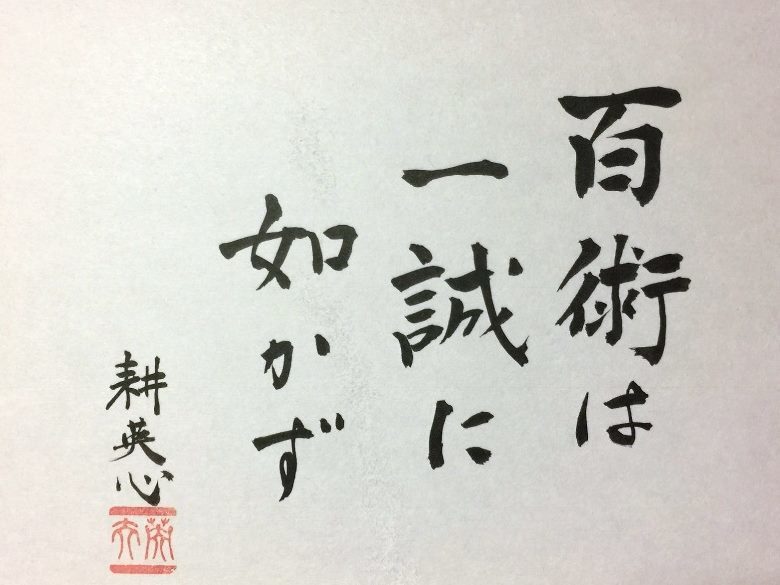 百術は
一誠に
如かず
耕英心